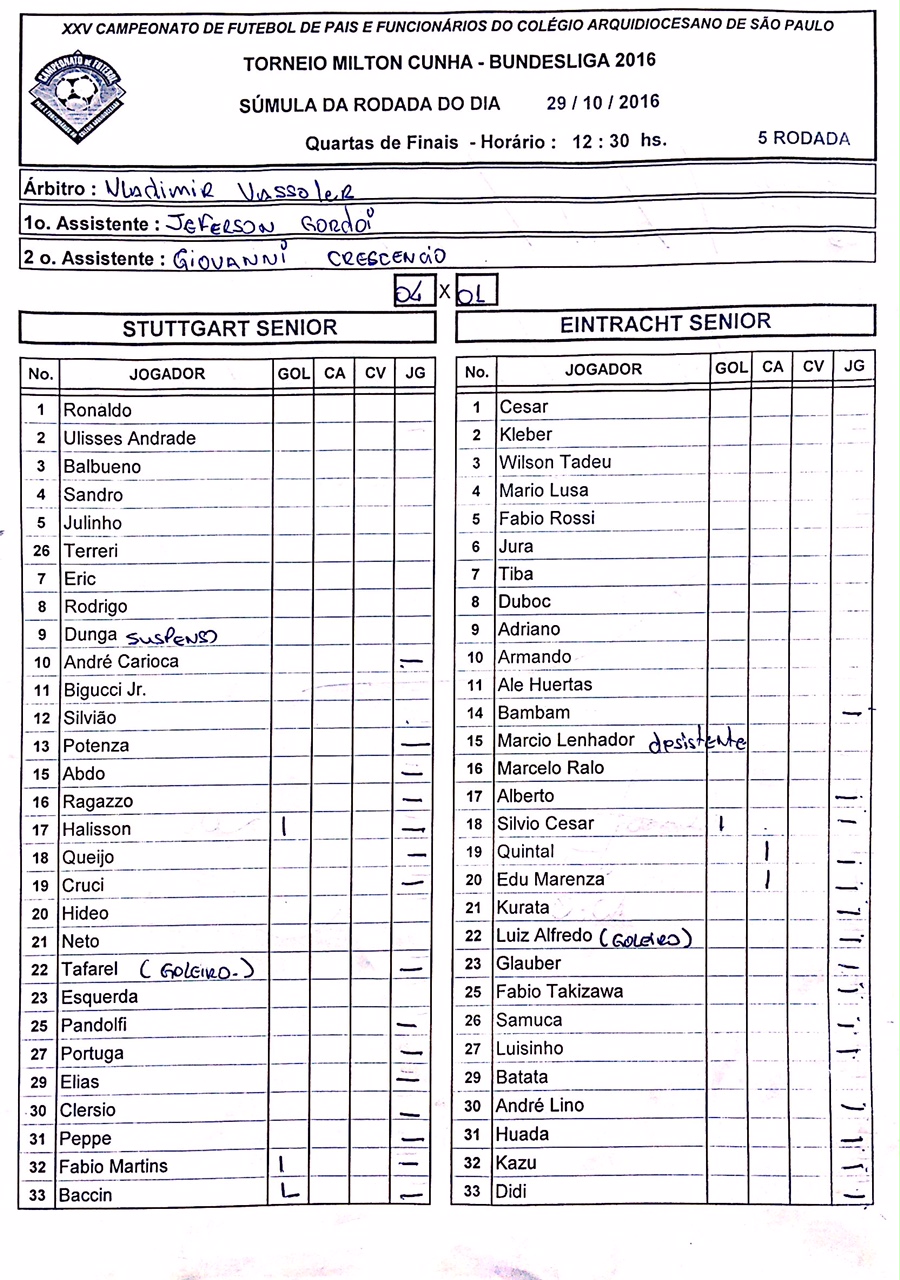 XXV CAMPEONATO DE FUTEBOL DE PAIS E FUNCIONÁRIOS DO COLÉGIO ARQUIDIOCESANO DE SÃO PAULO
TORNEIO MILTON CUNHA - BUNDESLIGA 2016
CAMPEONATO DE FUTEBOL
SÚMULA DA RODADA DO DIA 29 / 10 / 2016
Quartas de Finais - Horário : 12 : 30 hs. 5 RODADA
Árbitro : Vladimir Vassoler
1o. Assistente : JEFERSON GORDOI
2 o. Assistente : GIOVANNI CRESCENCIO
04 X 01
STUTTGART SENIOR
No. JOGADOR GOL CA CV JG
1 Ronaldo
2 Ulisses Andrade
3 Balbueno
4 Sandro
5 Julinho
26 Terreri
7 Eric
8 Rodrigo
9 Dunga SUSPENSO
10 André Carioca —
11 Bigucci Jr.
12 Silvião
13 Potenza —
15 Abdo —
16 Ragazzo —
17 Halisson I —
18 Queijo —
19 Cruci —
20 Hideo
21 Neto
22 Tafarel ( GOLEIRO.) —
23 Esquerda
25 Pandolfi —
27 Portuga —
29 Elias —
30 Clersio —
31 Peppe —
32 Fabio Martins I —
33 Baccin L —
EINTRACHT SENIOR
No. JOGADOR GOL CA CV JG
1 Cesar
2 Kleber
3 Wilson Tadeu
4 Mario Lusa
5 Fabio Rossi
6 Jura
7 Tiba
8 Duboc
9 Adriano
10 Armando
11 Ale Huertas
14 Bambam —
15 Marcio Lenhador desistente
16 Marcelo Ralo
17 Alberto —
18 Silvio Cesar I —
19 Quintal I —
20 Edu Marenza I —
21 Kurata —
22 Luiz Alfredo (GOLEIRO) —
23 Glauber —
25 Fabio Takizawa —
26 Samuca —
27 Luisinho —
29 Batata
30 André Lino —
31 Huada —
32 Kazu —
33 Didi —